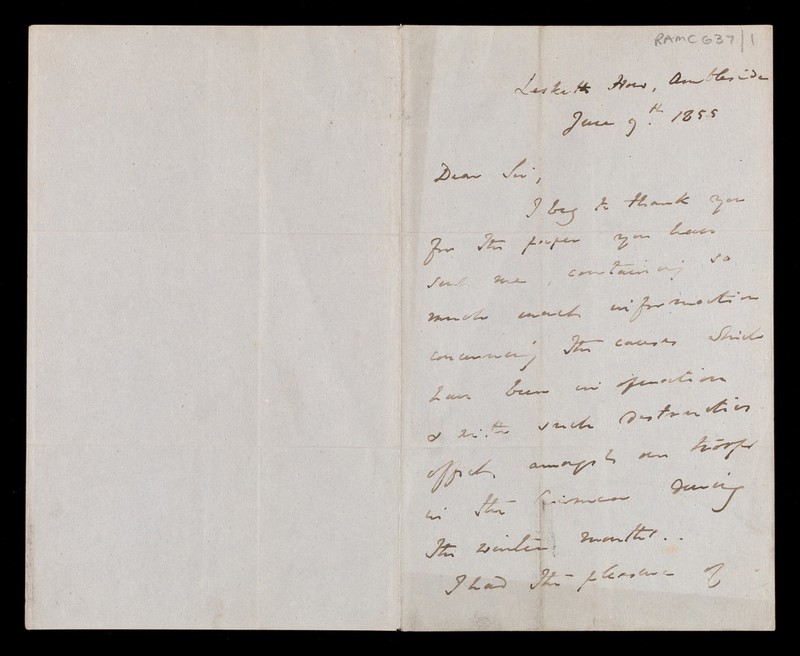 RAMC 637/1
Lesketh How, Ambleside
June 9th. 1855
Dear Sir,
I beg to thank you
for the paper you have
sent me, containing so
much exact information
concerning the causes which
have been in operation
& with such destructive
effect, amongst our troops
in the Crimea during
the winter months..
I had the pleasure of